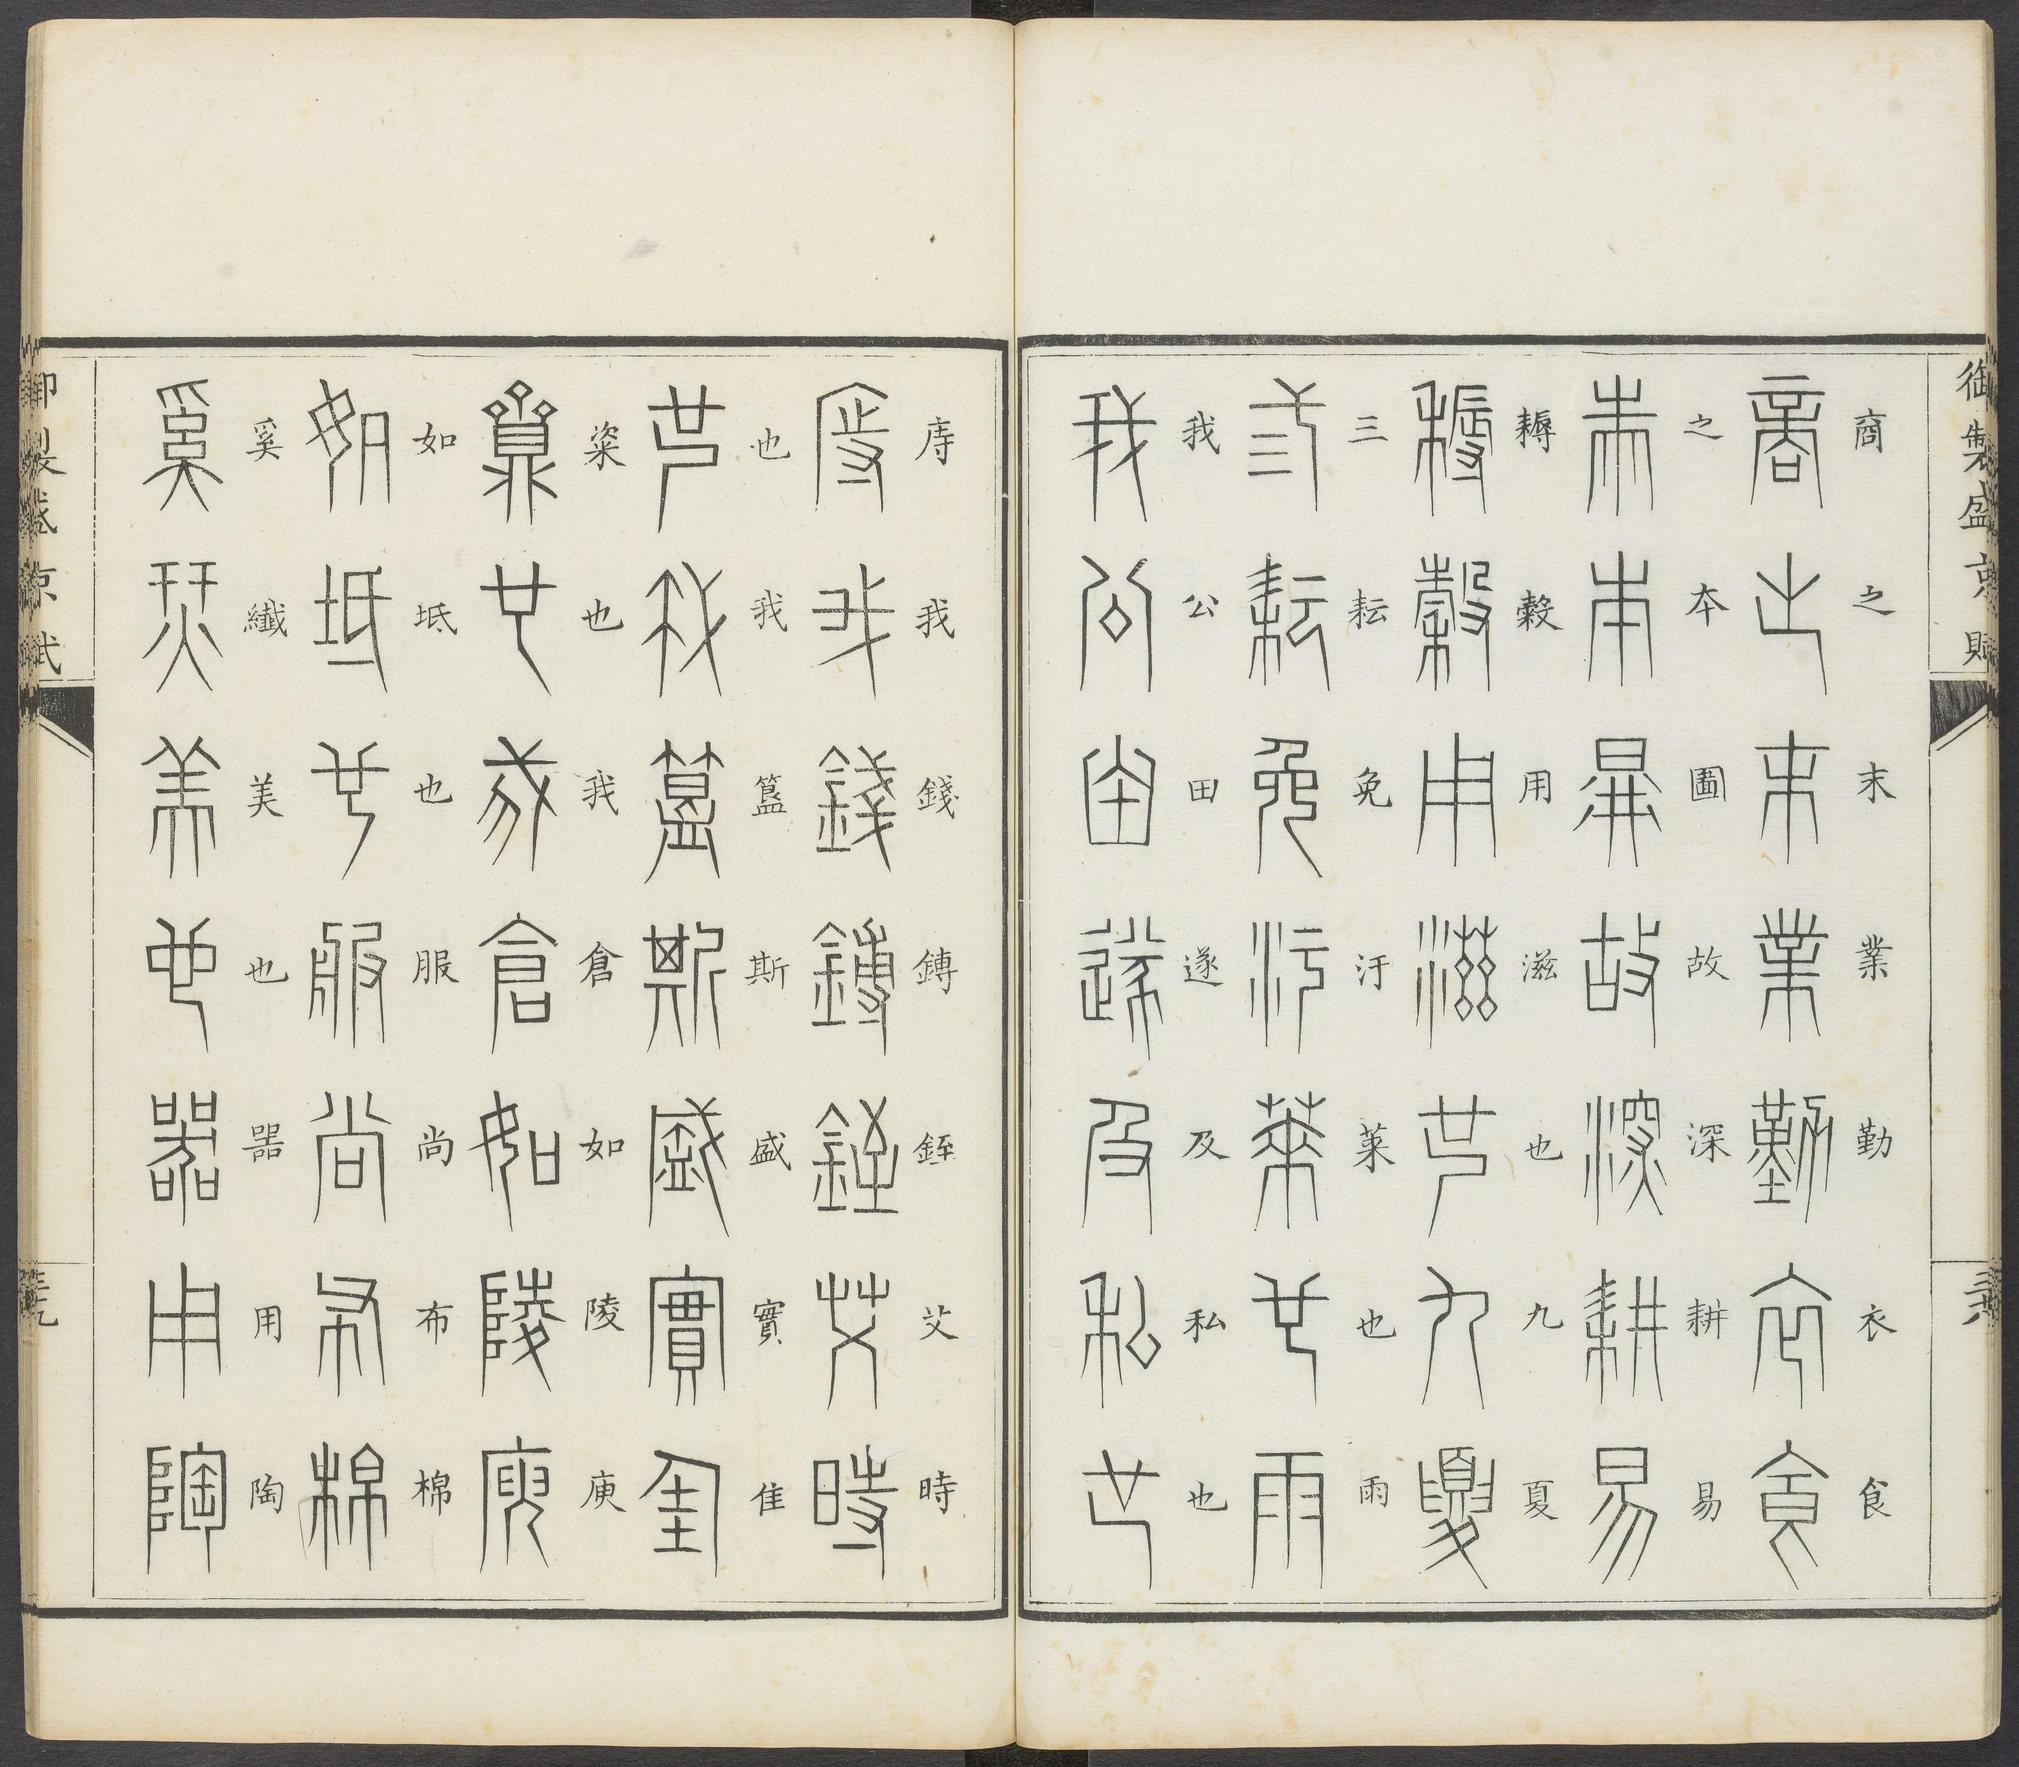 御製盛京賦
商之末業勤衣食
之本圖故深耕易
耨穀用滋也九夏
三耘免汙萊也雨
我公田遂及私也
庤我錢鎛銍艾時
也我簋斯盛實隹
粢也我倉如陵庾
如坻也服尚布棉
奚纖美也器用陶
御製盛京賦